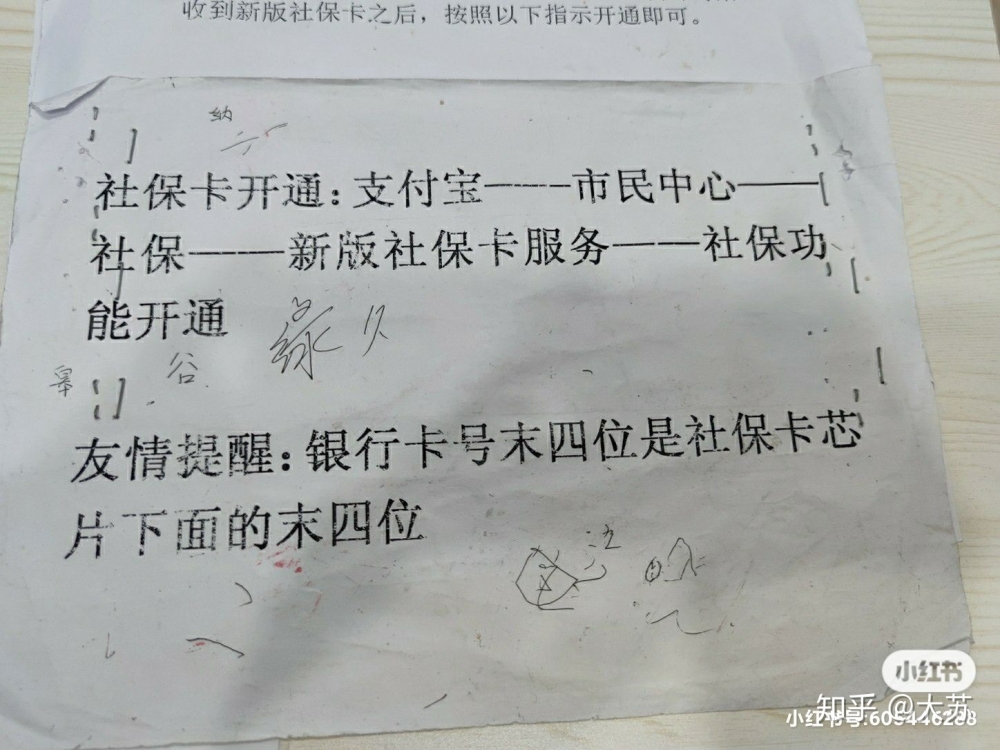 收到新版社保卡之后，按照以下指示开通即可。
纳
社保卡开通：支付宝———市民中心——
社保———新版社保卡服务———社保功
能开通
谷
友情提醒：银行卡号末四位是社保卡芯
片下面的末四位
小红书
知乎 @大苏
小红书号:605446288